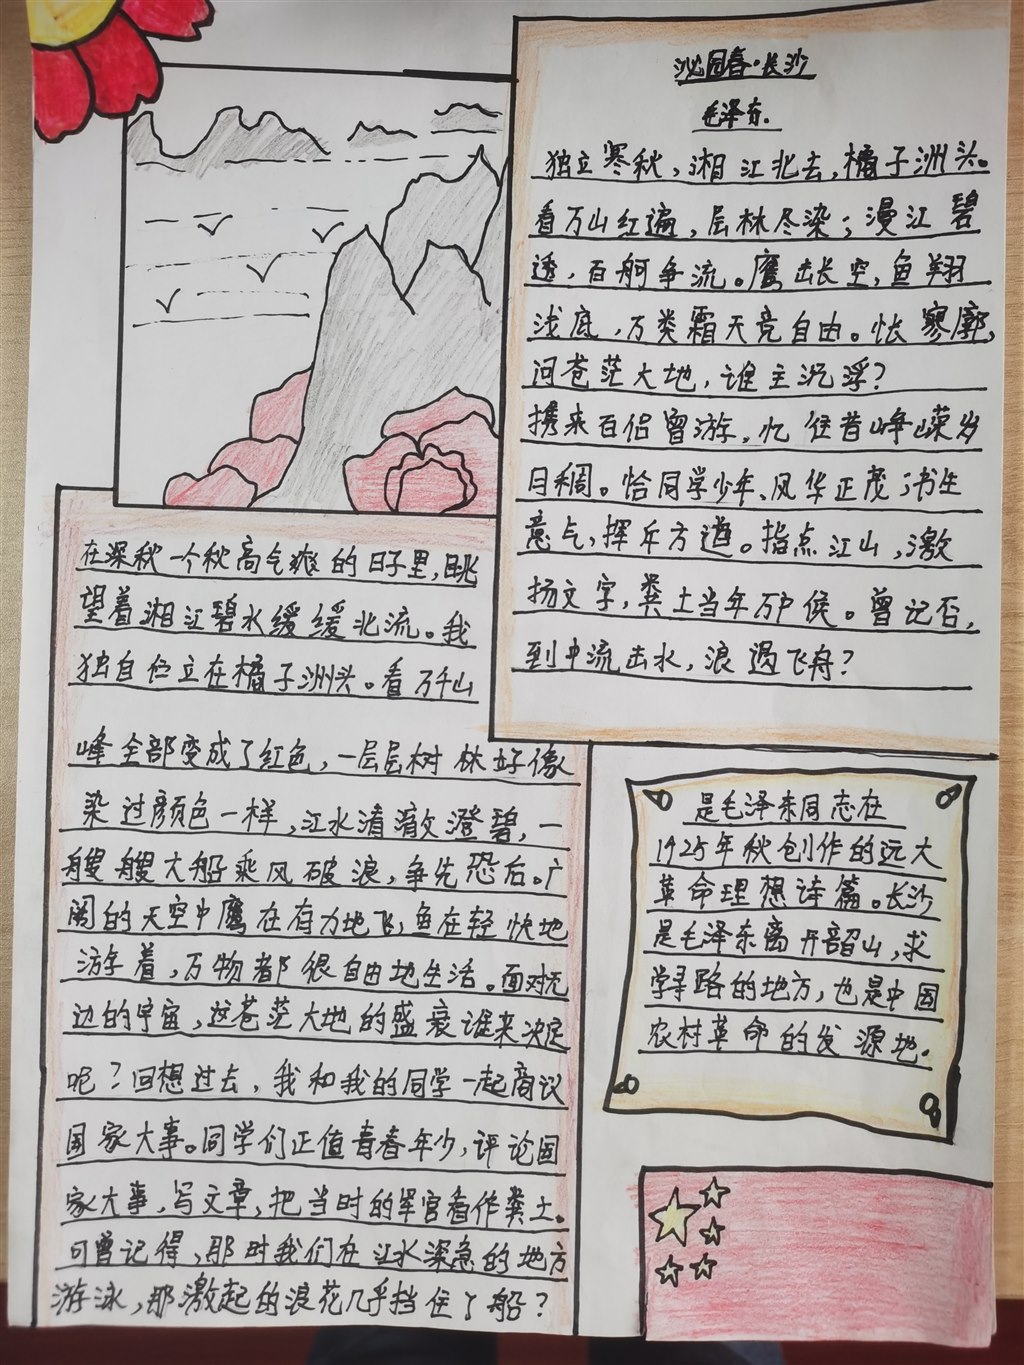 沁园春·长沙
毛泽东.
独立寒秋,湘江北去,橘子洲头。
看万山红遍,层林尽染;漫江碧
透,百舸争流。鹰击长空,鱼翔
浅底,万类霜天竞自由。怅寥廓,
问苍茫大地,谁主沉浮?
携来百侣曾游,忆往昔峥嵘岁
月稠。恰同学少年、风华正茂;书生
意气,挥斥方遒。指点江山,激
扬文字,粪土当年万户侯。曾记否,
到中流击水,浪遏飞舟?
在深秋一个秋高气爽的日子里,眺
望着湘江碧水缓缓北流。我
独自伫立在橘子洲头。看万千山
峰全部变成了红色,一层层树林好像
染过颜色一样,江水清澈澄碧,一
艘艘大船乘风破浪,争先恐后。广
阔的天空中鹰在有力地飞,鱼在轻快地
游着,万物都很自由地生活。面对无
边的宇宙,这苍茫大地的盛衰谁来决定
呢?回想过去,我和我的同学一起商议
国家大事。同学们正值青春年少,评论国
家大事,写文章,把当时的军官看作粪土。
可曾记得,那时我们在江水深急的地方
游泳,那激起的浪花几乎挡住了船?
是毛泽东同志在
1925年秋创作的远大
革命理想诗篇。长沙
是毛泽东离开韶山,求
学寻路的地方,也是中国
农村革命的发源地.